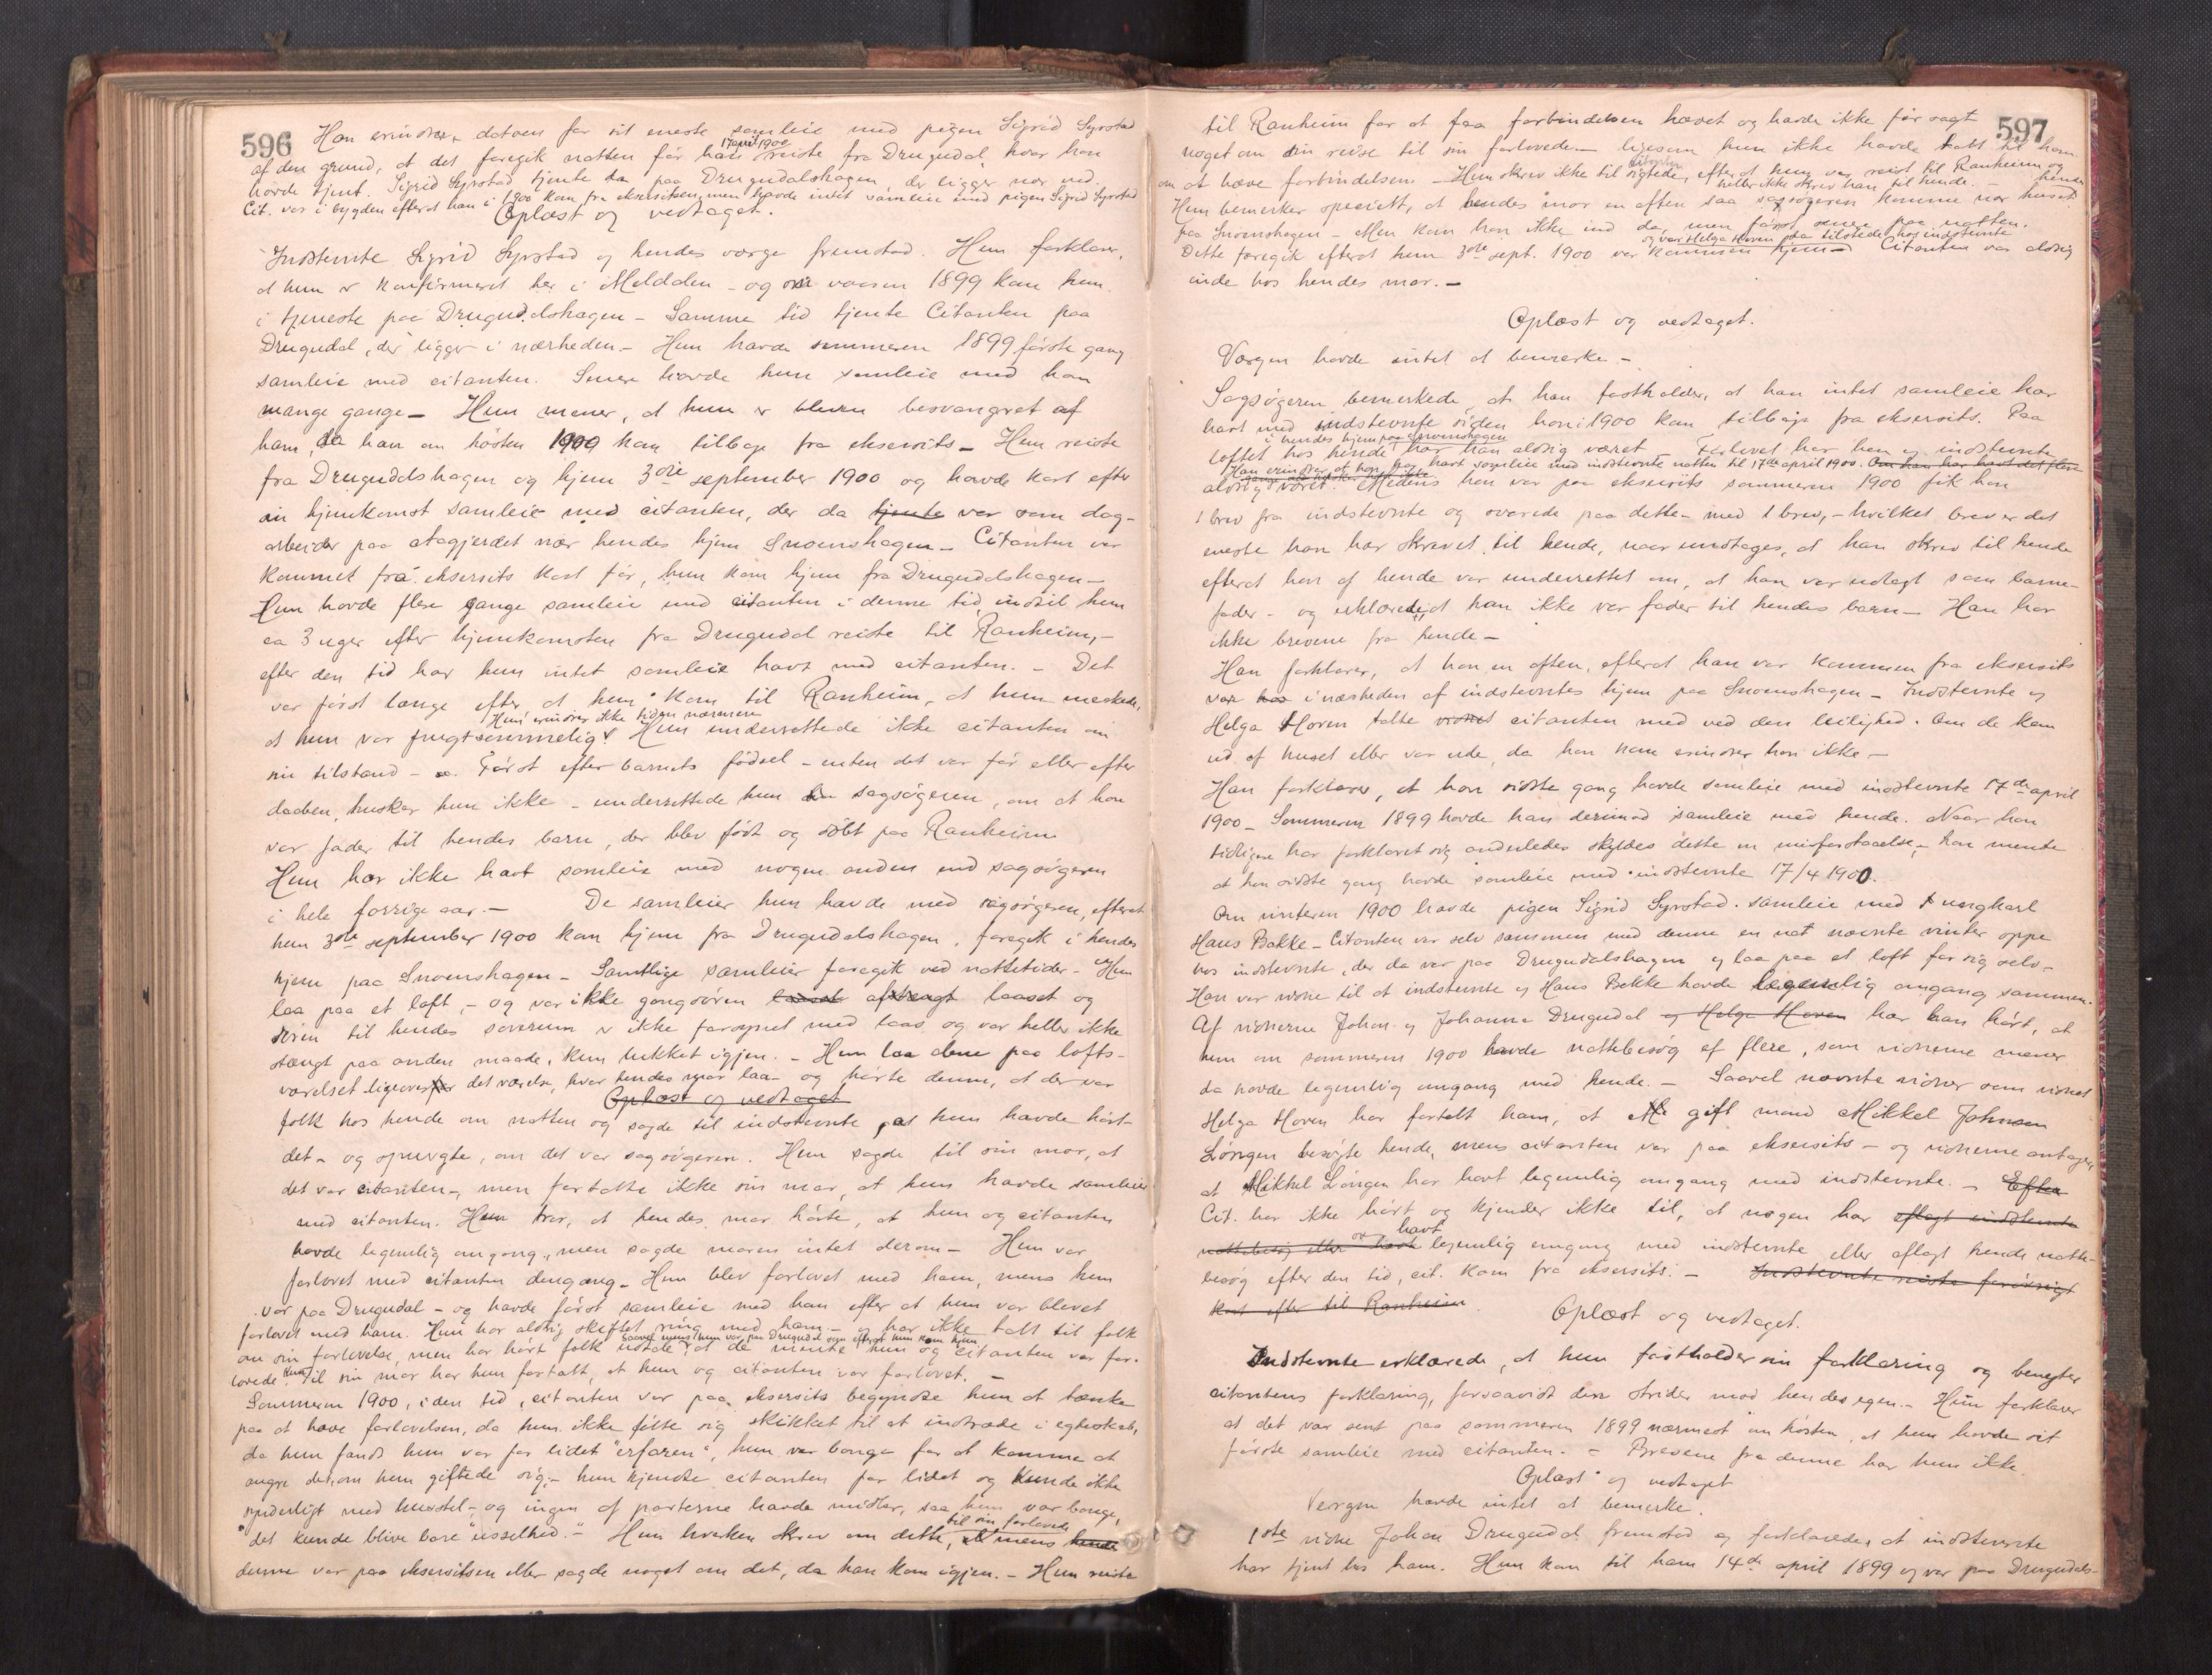 596
Han erindrer datoen for sit eneste samleie med pigen Sigrid Syrstad
17 april 1900
af den grund, at det foregik natten før han reiste fra Drugudal, hvor han
havde tjent. Sigrid Syrstad tjente da paa Drugudalshagen, der ligger nær ved.
Cit. var i bygden efterat han i 1900 kom fra eksersitsen, men havde intet samleie med pigen Sigrid Syrstad
Oplæst og vedtaget.
Indstevnte Sigrid Syrstad og hendes værge fremstod. Hun forklarer,
at hun er konfirmeret her i Meldalen - og om vaaren 1899 kom hun
i tjeneste paa Drugudalshagen - Samme tid tjente Citanten paa
Drugudal, der ligger i nærheden. - Hun havde sommeren 1899 første gang
samleie med citanten. Senere havde hun samleie med ham
mange gange - Hun mener, at hun er bleven besvangret af
ham, da han om høsten 1900 kom tilbage fra eksersits - Hun reiste
fra Drugudalshagen og hjem 3die september 1900 og havde kort efter
sin hjemkomst samleie med citanten, der da tjente var som dag-
arbeider paa atagjerdet nær hendes hjem Snoenshagen - Citanten var
kommet fra eksersits kort før, hun kom hjem fra Drugudalshagen -
Hun havde flere gange samleie med citanten i denne tid indtil hun
ca 3 uger efter hjemkomsten fra Drugudal reiste til Ranheim, -
efter den tid har hun intet samleie havt med citanten. - Det
var først længe efter at hun kom til Ranheim, at hun merkede,
Hun erindrer ikke tiden nærmere
at hun var frugtsommelig. Hun underrettede ikke citanten om
sin tilstand - Først efter barnets fødsel - enten det var før eller efter
daaben, husker hun ikke - underrettede hun sagsøgeren, om at han
var fader til hendes barn, der blev født og døbt paa Ranheim
Hun har ikke havt samleie med nogen anden end sagsøgeren
i hele forrige aar. - De samleier hun havde med sagsøgeren, efterat
hun 3die september 1900 kom hjem fra Drugudalshagen, foregik i hendes
hjem paa Snoenshagen - Samtlige samleier foregik ved nattetider - Hun
laa paa et loft, - og var ikke gangdøren laaset afstængt laaset og
døren til hendes soverum er ikke forsynet med laas og var heller ikke
stængt paa anden maade, kun lukket igjen. - Hun laa alene paa lofts-
værelset ligeover det værelse, hvor hendes mor laa - og hørte denne, at der var
Oplæst og vedtaget
folk hos hende om natten og sagde til indstevnte, at hun havde hørt
det - og spurgte, om det var sagsøgeren. Hun sagde til sin mor, at
det var citanten -, men fortalte ikke sin mor, at hun havde samleie
med citanten. Hun tror, at hendes mor hørte, at hun og citanten
havde legemlig omgang, men sagde moren intet derom - Hun var
forlovet med citanten dengang - Hun blev forlovet med ham, mens hun
var paa Drugudal - og havde først samleie med ham efter at hun var blevet
forlovet med ham. Hun har aldrig skiftet ring med ham - og har ikke talt til folk
saavel mens hun var paa Drugudal som efterat hun kom hjem
om sin forlovelse, men har hørt folk udtale, at de mente hun og citanten var for-
lovede. Kun til sin mor har hun fortalt, at hun og citanten var forlovet. -
Sommeren 1900, i den tid, citanten var paa eksersits begyndte hun at tænke
paa at hæve forlovelsen, da hun ikke følte sig skikket til at indtræde i egteskab,
da hun fandt hun var for lidet "erfaren", hun var bange for at komme at
angre det, om hun giftede sig; - hun kjendte citanten for lidet og kunde ikke
synderligt med husstel - og ingen af parterne havde midler, saa hun var bange,
til sin forlovede
"det kunde blive bare usselhed." - Hun hverken skrev om dette, mens hende
denne var paa eksersitsen eller sagde noget om det, da han kom igjen. - Hun reiste
597
til Ranheim for at faa forbindelsen hævet og havde ikke før sagt
noget om sin reise til sin forlovede - ligesom hun ikke havde talt til ham
citanten
om at hæve forbindelsen. - Hun skrev ikke til sigtede, efterat hun var reist til Ranheim og
heller ikke skrev han til hende. -
Hun bemerker specielt, at hendes mor en aften saa sagsøgeren komme nær hendes huset
paa Snoenshagen - Men kom han ikke ind da, men først senere paa natten.
og var Helga Hoven da tilstede hos indstevnte
Dette foregik efterat hun 3die sept. 1900 var kommen hjem - Citanten var aldrig
inde hos hendes mor. -
Oplæst og vedtaget.
Værgen havde intet at bemerke -
Sagsøgeren bemerkede, at han fastholder, at han intet samleie har
havt med indstevnte siden han i 1900 kom tilbage fra eksersits. Paa
i hendes hjem paa Snoenshagen
loftet hos hende har han aldrig været - Forlovet har han og indstevnte
Han erindrer at han har havt samleie med indstevnte natten til 17de april 1900. Om han har havt det flere
gange
aldrig været. Medens han var paa eksersits sommeren 1900 fik han
1 brev fra indstevnte og svarede paa dette - med 1 brev, - hvilket brev er det
eneste han har skrevet til hende, naar undtages, at han skrev til hende
efterat han af hende var underrettet om, at han var udlagt som barne-
fader - og erklærede, at han ikke var fader til hendes barn - Han har
ikke brevene fra hende -
Han forklarer, at han en aften, efterat han var kommen fra eksersits
var hos i nærheden af indstevntes hjem paa Snoenshagen - Indstevnte og
Helga Hoven talte vidnet citanten med ved den leilighed. Om de kom
ud af huset eller var ude, da han kom erindrer han ikke -
Han forklarer, at han sidste gang havde samleie med indstevnte 17de april
1900 - Sommeren 1899 havde han derimod samleie med hende. Naar han
tidligere har forklaret sig anderledes skyldes dette en misforstaaelse, - han mente
at han sidste gang havde samleie med indstevnte 17/4 1900.
Om vinteren 1900 havde pigen Sigrid Syrstad samleie med ungkarl
Hans Bakke - Citanten var selv sammen med denne en nat nævnte vinter oppe
hos indstevnte, der da var paa Drugudalshagen og laa paa et loft for sig selv -
Han var vidne til at indstevnte og Hans Bakke havde legemlig omgang sammen.
Af vidnerne Johan og Johanna Drugudal og Helga Hoven har han hørt, at
hun om sommeren 1900 havde nattebesøg af flere, som vidnerne mener
da havde legemlig omgang med hende. - Saavel nævnte vidner som vidnet
Helga Hoven har fortalt ham, at gift mand Mikkel Johnsen
Løngen besøgte hende, mens citanten var paa eksersits - og vidnerne antager,
at Mikkel Løngen har havt legemlig omgang med indstevnte. - Efter
Cit. har ikke hørt og kjender ikke til, at nogen har aflagt indstevnte
havt
nattebesøg eller legemlig omgang med indstevnte eller aflagt hende natte-
besøg efter den tid, cit. kom fra eksersits. - Indstevnte reiste forøvrigt
kort efter til Ranheim. Oplæst og vedtaget.
Indstevnte erklærede, at hun fastholder sin forklaring og benegter
citantens forklaring, forsaavidt den strider mod hendes egen. - Hun forklarer
at det var sent paa sommeren 1899 nærmest om høsten, at hun havde sit
første samleie med citanten. - Brevene fra denne har hun ikke.
Oplæst og vedtaget
Værgen havde intet at bemerke.
1ste vidne Johan Drugudal fremstod og forklarede, at indstevnte
har tjent hos ham. Hun kom til ham 14de april 1899 og var paa Drugudals-